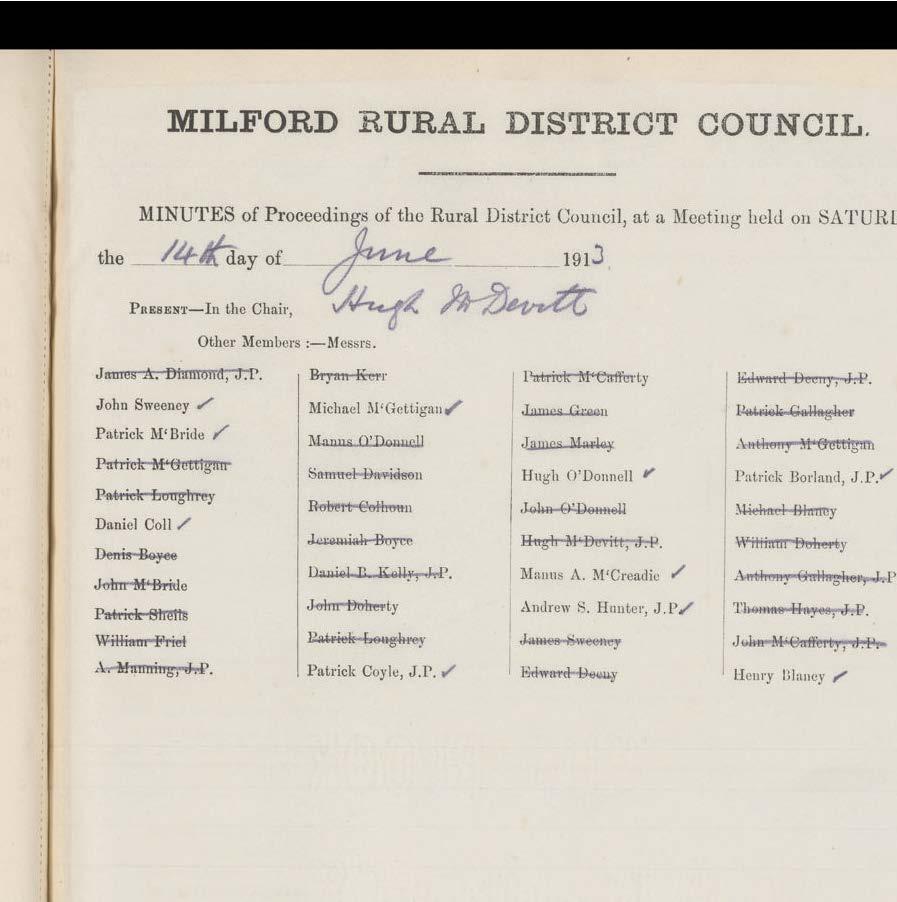 MILFORD RURAL DISTRICT COUNCIL.
MINUTES of Proceedings of the Rural District Council, at a Meeting held on SATURD
the 14th day of June 1913.
PRESENT—In the Chair, Hugh McDevitt
Other Members :—Messrs.
James A. Diamond, J.P.
John Sweeney ✓
Patrick M‘Bride ✓
Patrick M‘Gettigan
Patrick Loughrey
Daniel Coll ✓
Denis Boyce
John M‘Bride
Patrick Sheils
William Friel
A. Manning, J.P.
Bryan Kerr
Michael M‘Gettigan ✓
Manus O’Donnell
Samuel Davidson
Robert Colhoun
Jeremiah Boyce
Daniel B. Kelly, J.P.
John Doherty
Patrick Loughrey
Patrick Coyle, J.P. ✓
Patrick M‘Cafferty
James Green
James Marley
Hugh O’Donnell ✓
John O’Donnell
Hugh M‘Devitt, J.P.
Manus A. M‘Creadie ✓
Andrew S. Hunter, J.P. ✓
James Sweeney
Edward Deeny
Edward Deeny, J.P.
Patrick Gallagher
Anthony M‘Gettigan
Patrick Borland, J.P. ✓
Michael Blaney
William Doherty
Anthony Gallagher, J.P
Thomas Hayes, J.P.
John M‘Cafferty, J.P.
Henry Blaney ✓